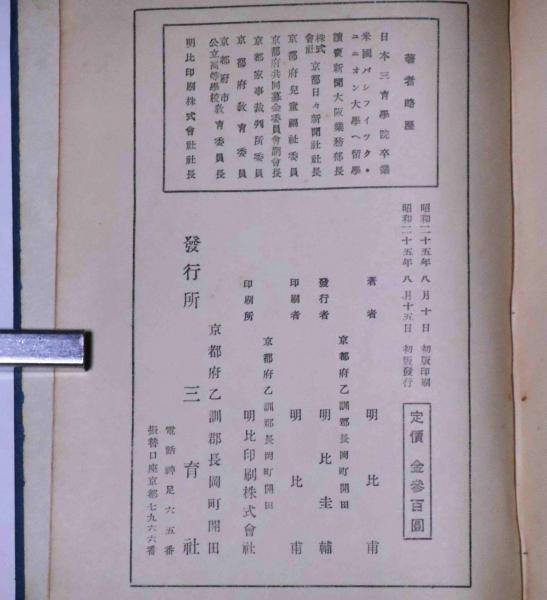 著者略歴
日本三育學院卒業
米國パシフイツク・
ユニオン大學へ留學
讀賣新聞大阪業務部長
株式會社京都日々新聞社社長
京都府兒童福祉委員
京都府共同募金委員會副會長
京都家事裁判所委員
京都府教育委員
京都府市公立高等學校教育委員長
明比印刷株式會社社長
昭和二十五年八月十日 初版印刷
昭和二十五年八月十五日 初版發行
定價 金參百圓
著者 明比甫
京都府乙訓郡長岡町開田
發行者 明比圭輔
印刷者 明比甫
京都府乙訓郡長岡町開田
印刷所 明比印刷株式會社
京都府乙訓郡長岡町開田
發行所 三育社
電話神足六五番
振替口座京都七九六六番